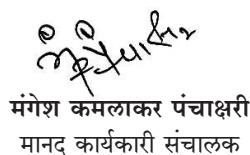 मंगेश कमलाकर पंचाक्षरी
मानद कार्यकारी संचालक